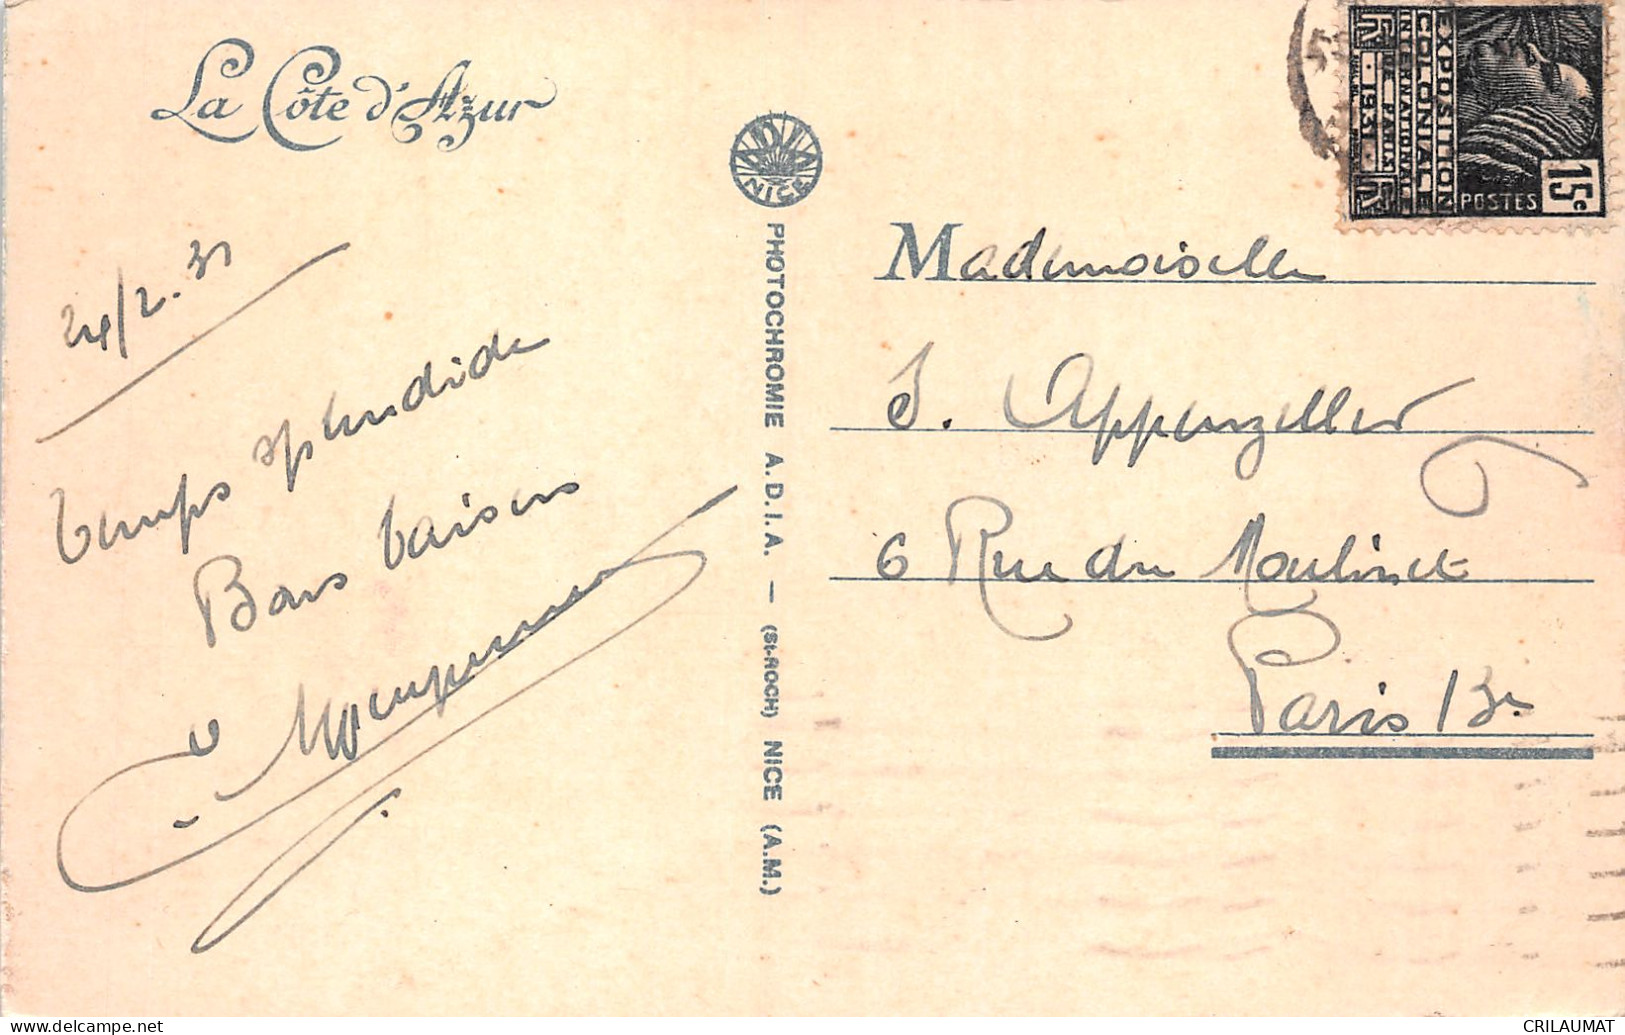 La Côte d'Azur
24/2.31
temps splendide
Bons baisers
ADIA
NICE
PHOTOCHROMIE A.D.I.A. — (St-ROCH) NICE (A.M.)
EXPOSITION
COLONIALE
INTERNATIONALE
PARIS
1931
POSTES
15c
Mademoiselle
S. Appenzeller
6 Rue du Moulinet
Paris 13e
www.delcampe.net
CRILAUMAT